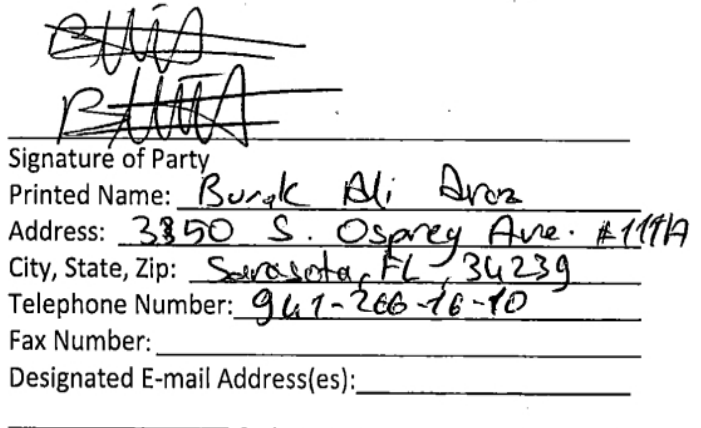 Signature of Party
Printed Name: Burak Ali Araz
Address: 3350 S. Osprey Ave. #111A
City, State, Zip: Sarasota, FL, 34239
Telephone Number: 941-266-16-10
Fax Number:
Designated E-mail Address(es):